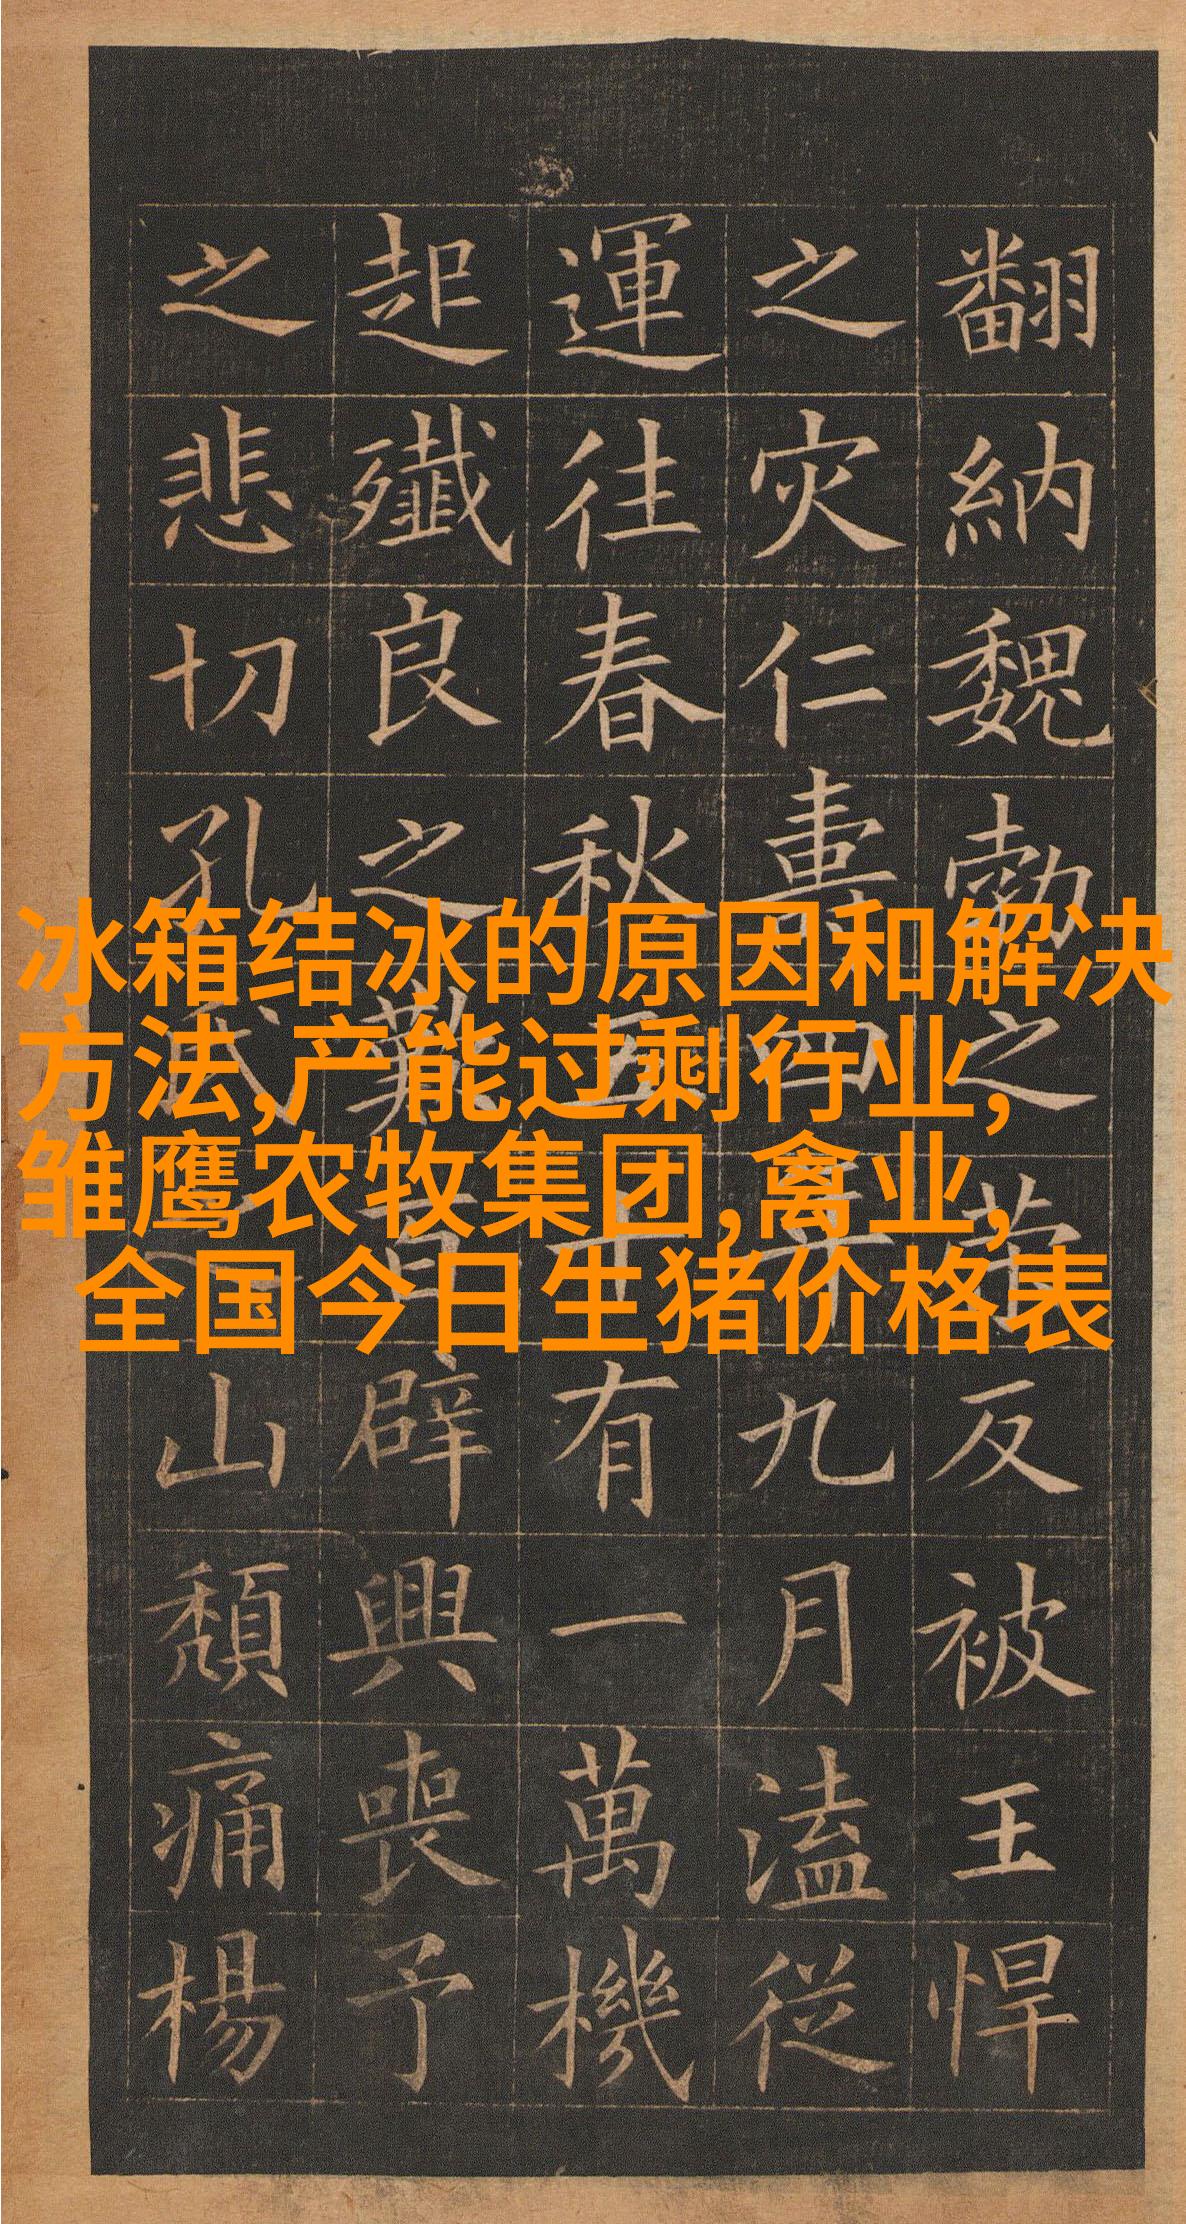 冰箱结冰的原因和解决
方法,产能过剩行业,
雏鹰农牧集团,禽业,
全国今日生猪价格表
翻納魏勃之反被王悍
之灾仁壽四年九月溘從
運往春秋五十有一萬機
起殲良之百辟興喪予
之悲切孔氏之山頹痛楊